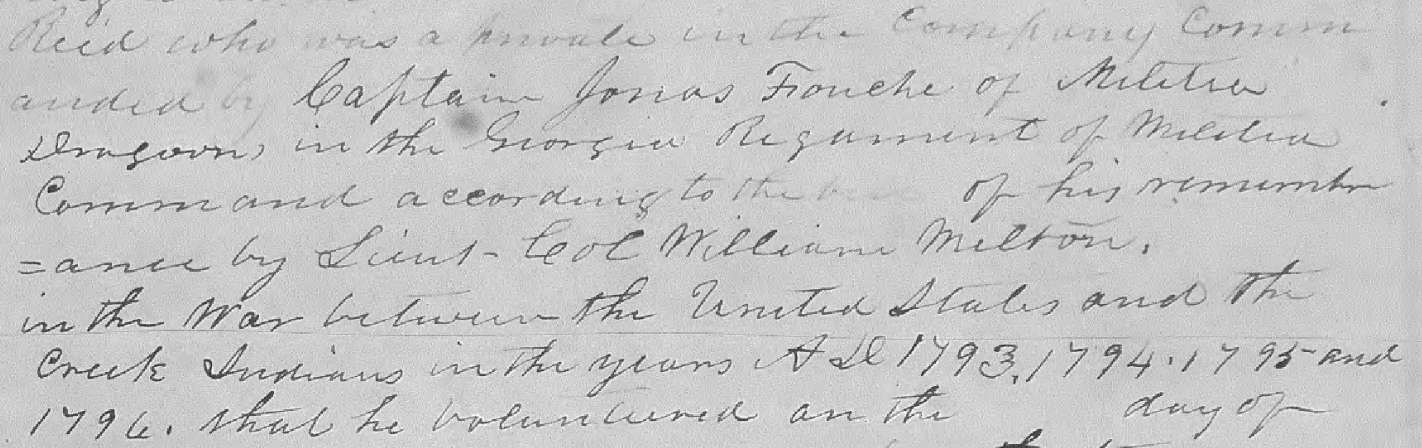 Reid who was a private in the Company Comm
anded by Captain Jonas Fouche of Militia
Dragoons in the Georgia Regament of Militia
Command according to the best of his remembr
=ance by Lieut- Col William Melton.
in the War between the United States and the
Creek Indians in the years A D 1793, 1794. 1795 and
1796. that he volunteered on the day of